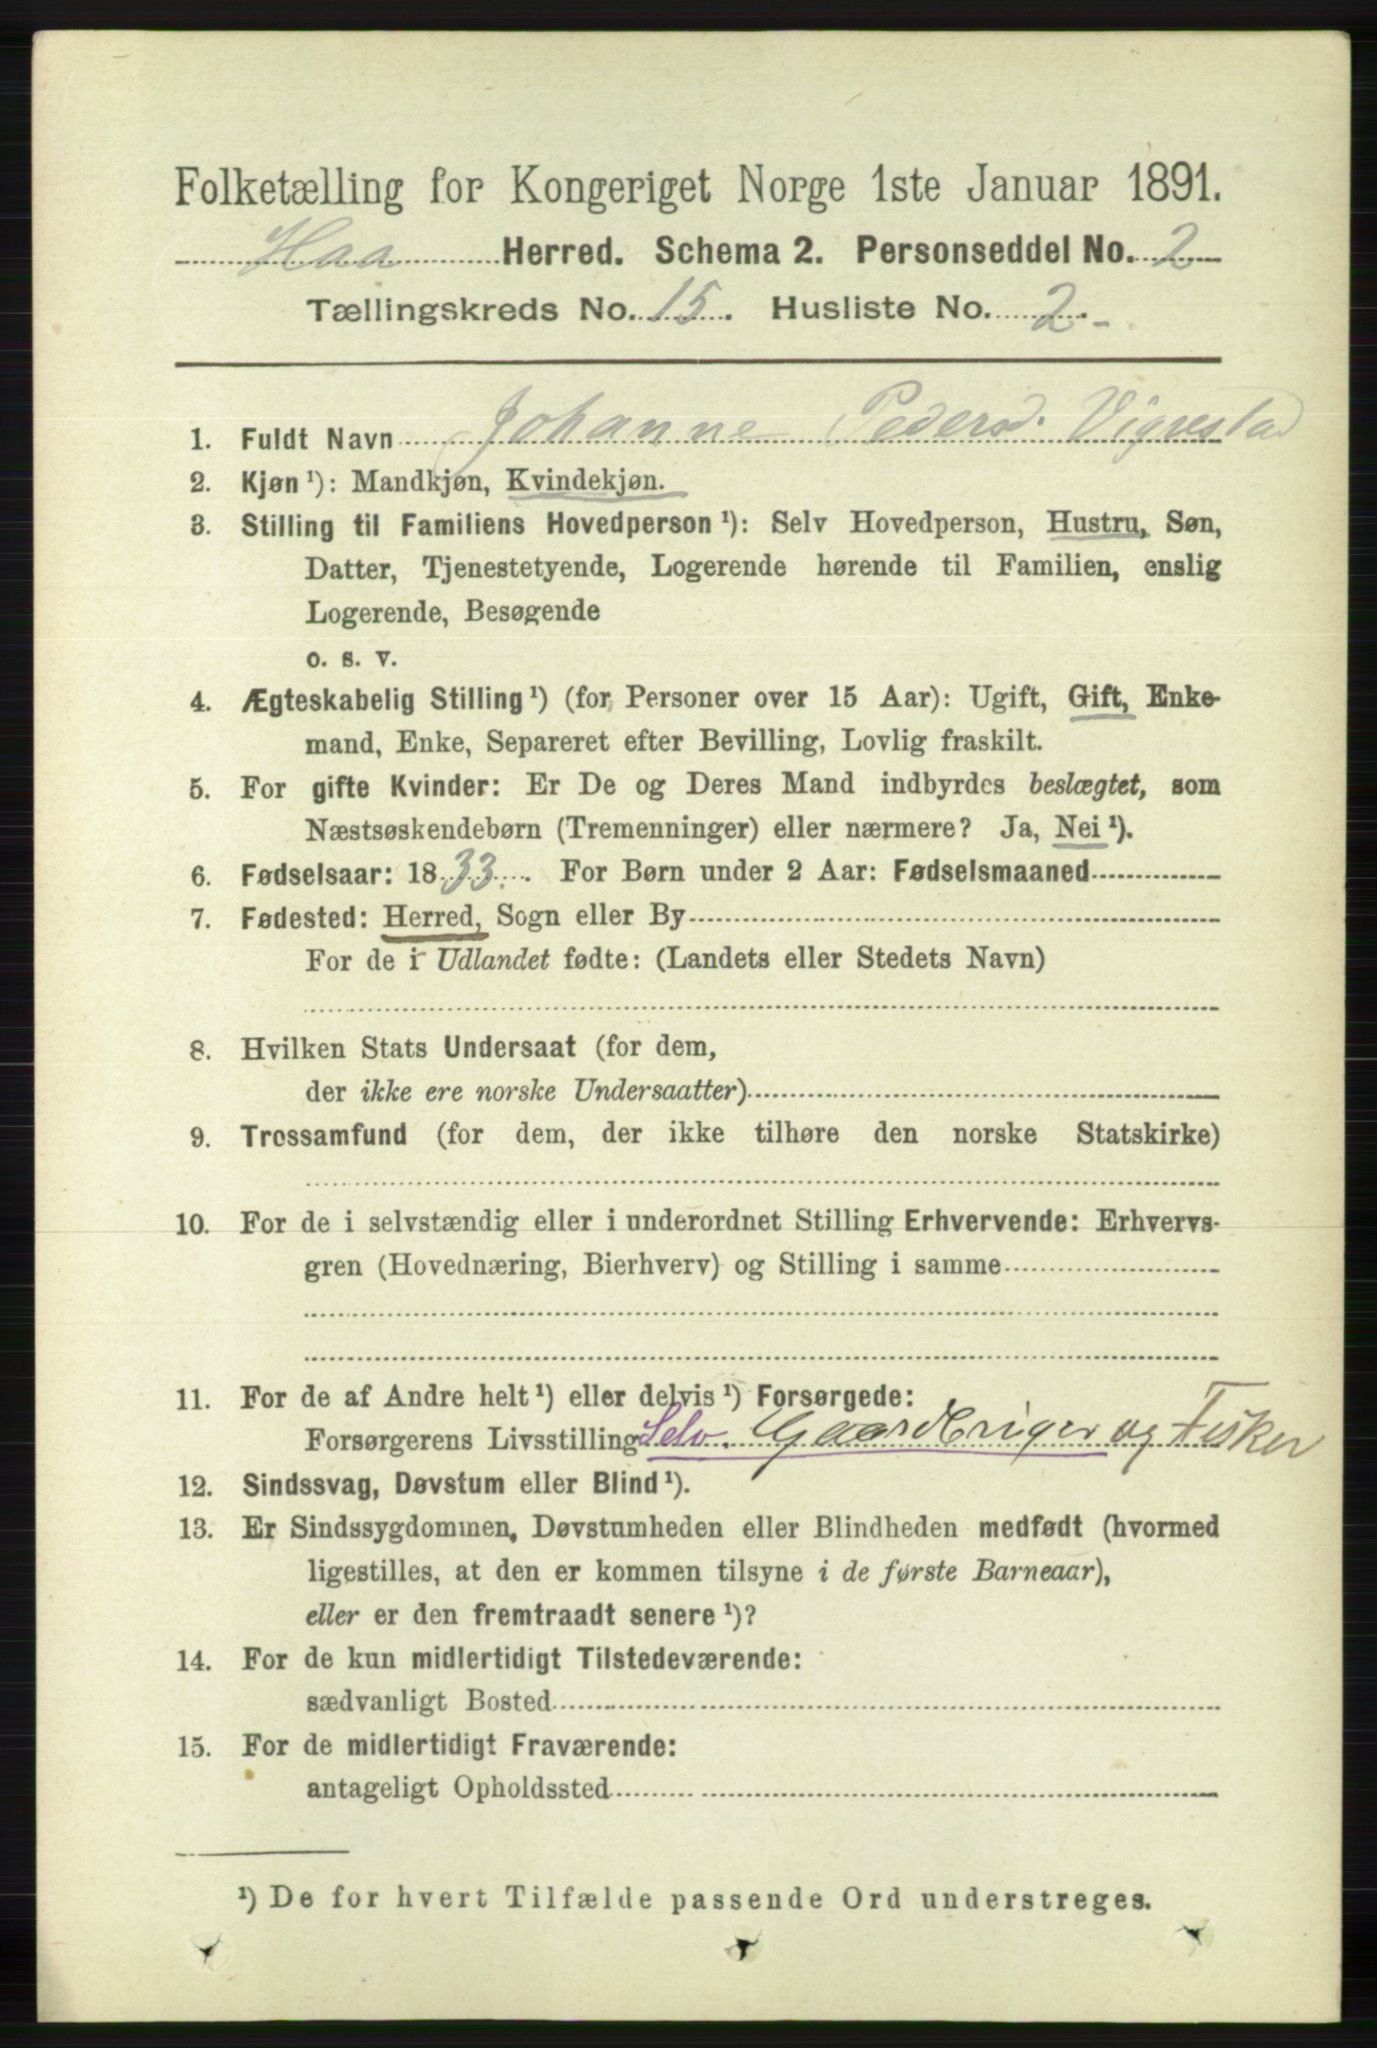 Folketælling for Kongeriget Norge 1ste Januar 1891.
Haa Herred. Schema 2. Personseddel No. 2
Tællingskreds No. 15. Husliste No. 2
1. Fuldt Navn Johanne Pedersd. Vigrestad
2. Kjøn¹): Mandkjøn, Kvindekjøn.
3. Stilling til Familiens Hovedperson¹): Selv Hovedperson, Hustru, Søn,
Datter, Tjenestetyende, Logerende hørende til Familien, enslig
Logerende, Besøgende
o. s. v.
4. Ægteskabelig Stilling¹) (for Personer over 15 Aar): Ugift, Gift, Enke-
mand, Enke, Separeret efter Bevilling, Lovlig fraskilt.
5. For gifte Kvinder: Er De og Deres Mand indbyrdes beslægtet, som
Næstsøskendebørn (Tremenninger) eller nærmere? Ja, Nei¹).
6. Fødselsaar: 1833. For Børn under 2 Aar: Fødselsmaaned
7. Fødested: Herred, Sogn eller By
For de i Udlandet fødte: (Landets eller Stedets Navn)
8. Hvilken Stats Undersaat (for dem,
der ikke ere norske Undersaatter)
9. Trossamfund (for dem, der ikke tilhøre den norske Statskirke)
10. For de i selvstændig eller i underordnet Stilling Erhvervende: Erhvervs-
gren (Hovednæring, Bierhverv) og Stilling i samme
11. For de af Andre helt¹) eller delvis¹) Forsørgede:
Forsørgerens Livsstilling Selv. Gaardbruger og Fisker
12. Sindssvag, Døvstum eller Blind¹).
13. Er Sindssygdommen, Døvstumheden eller Blindheden medfødt (hvormed
ligestilles, at den er kommen tilsyne i de første Barneaar),
eller er den fremtraadt senere¹)?
14. For de kun midlertidigt Tilstedeværende:
sædvanligt Bosted
15. For de midlertidigt Fraværende:
antageligt Opholdssted
¹) De for hvert Tilfælde passende Ord understreges.